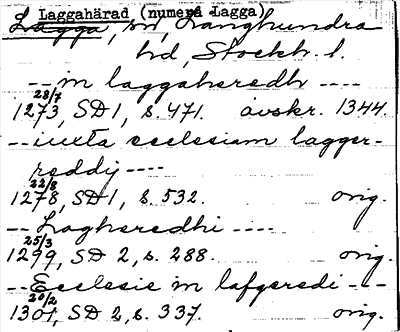 Laggahärad (numera Lagga)
Lagga, sn, Långhundra
hd, Stockh. l.
-- in laggahæredh ----
28/7
1273, SD 1, s. 471. avskr. 1344.
-- iuxta ecclesiam lagger-
reddij ----
22/8
1278, SD 1, s. 532. orig.
-- Laghæredhi ----
25/3
1299, SD 2, s. 288. orig.
-- Ecclesie in lafgeredi ---
20/2
1301, SD 2, s. 337. orig.